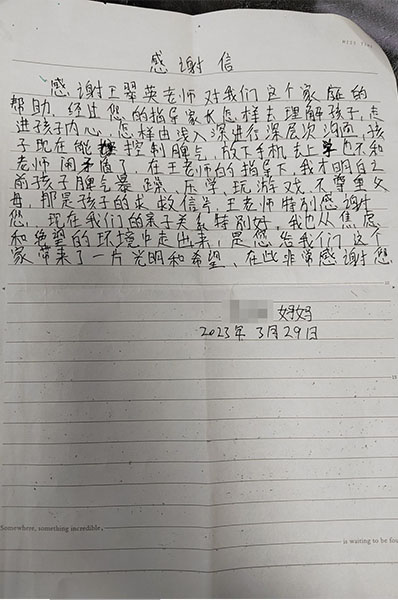 感谢信
感谢王翠英老师对我们这个家庭的
帮助,经过您的指导家长怎样去理解孩子,走
进孩子内心,怎样由浅入深进行深层次沟通,孩
子现在能控制脾气,放下手机去上学也不和
老师闹矛盾了,在王老师的指导下,我才明白之
前孩子脾气暴躁、压学玩游戏、不尊重父
母,那是孩子的求救信号,王老师特别感谢
您,现在我们的亲子关系特别好,我也从焦虑
和绝望的环境中走出来,是您给我们这个
家带来了一片光明和希望、在此非常感谢您
妈妈
2023年3月29日
Somewhere, something incredible,
is waiting to be fou